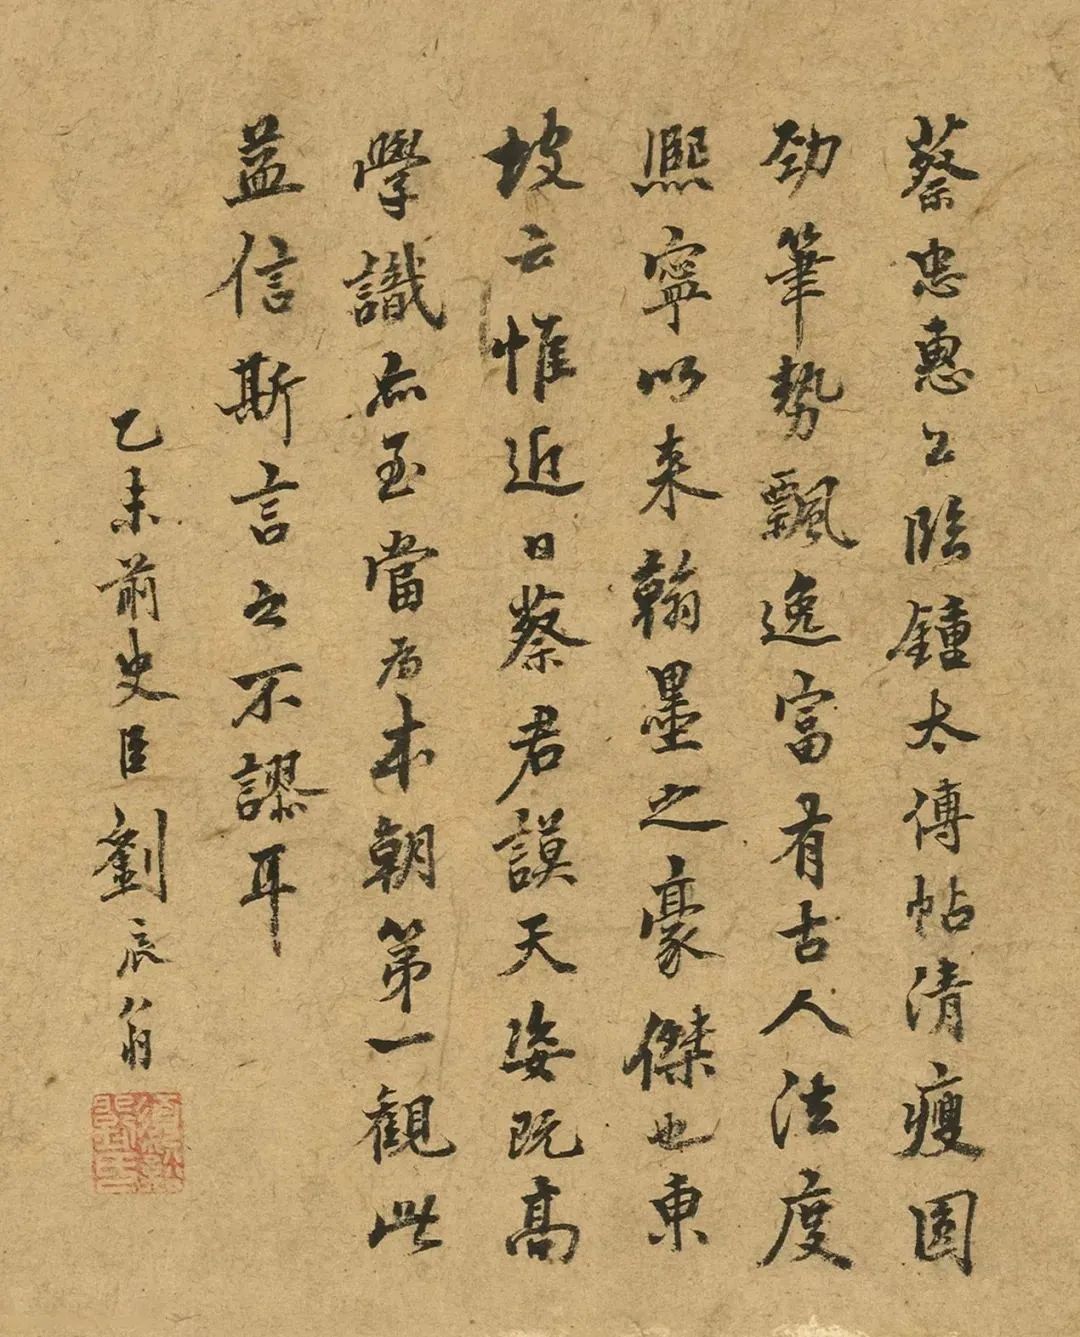 蔡忠惠公臨鍾太傅帖清瘦圓
勁筆勢飄逸富有古人法度
熙寧以来翰墨之豪傑也東
坡云惟近日蔡君謨天姿既高
學識亦至當為本朝第一觀此
益信斯言之不謬耳
乙未前史臣劉辰翁